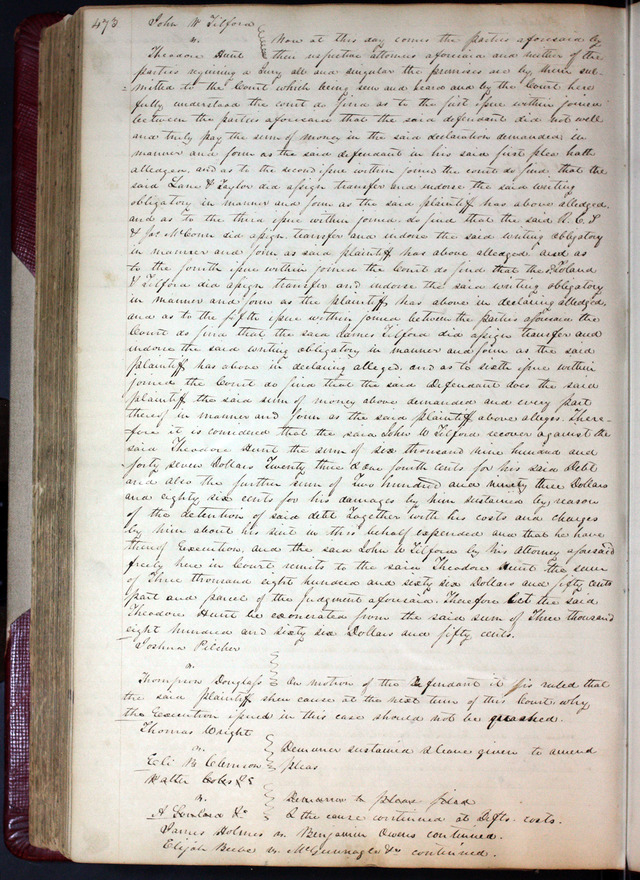 473 John W Tilford
vs. Now at this day comes the parties aforesaid by
Theodore Hunt their respective attornies aforesaid and neither of the
parties requiring a Jury all and singular the premises are by them sub-
mitted to the Court which being seen and heard and by the Court here
fully understood the court do find as to the first issue within joined
between the parties aforesaid that the said defendant did not well
and truly pay the sum of money in the said declaration demanded in
manner and form as the said defendant in his said first plea hath
alledged, and as to the second issue within joined the court do find that the
said Lane & Taylor did assign transfer and indorse the said writing
obligatory in manner and form as the said plaintiff has above alledged
and as to the third issue within joined do find that the said
& Jas McConn did assign transfer and indorse the said writing obligatory
in manner and form as said plaintiff has above alledged and as
to the fourth issue within joined the Court do find that the
& Tilford did assign transfer and indorse the said writing obligatory
in manner and form as the plaintiff has above in declaring alledged,
and as to the fifth issue within joined between the parties aforesaid the
Court do find that the said James Tilford did assign transfer and
indorse the said writing obligatory in manner and form as the said
plaintiff has above in declaring alleged, and as to sixth issue within
joined the Court do find that the said Defendant does the said
plaintiff the said sum of money above demanded and every part
thereof in manner and form as the said plaintiff above alleges. There-
fore it is considered that the said John W Tilford recover against the
said Theodore Hunt the sum of six thousand nine hundred and
forty seven dollars Twenty three & one fourth cents for his said Debt
and also the further sum of Two hundred and ninety three Dollars
and eighty six cents for his damages by him sustained by reason
of the detention of said debt Together with his costs and charges
by him about his suit in this behalf expended and that he have
thereof Execution, and the said John W Tilford by his attorney aforesaid
freely here in Court remits to the said Theodore Hunt the sum
of Three thousand eight hundred and sixty six Dollars and fifty cents
part and parcel of the Judgment aforesaid. Therefore let the said
Theodore Hunt be exonerated from the said sum of Three thousand
eight hundred and sixty six Dollars and fifty cents.
Joshua Pilcher
vs.
Thompson Douglass On motion of the Defendant it is ruled that
the said plaintiff shew cause at the next term of this Court why
the Execution issued in this case should not be quashed.
Thomas Wright
vs. Demurrer sustained & leave given to amend
Eli B Clemson pleas
Walter
vs. Demurrer to pleas filed
A & the cause continued at Defts. costs.
James Holmes vs. Benjamin Owens continued.
Elijah Beebe vs. McGunnagle & continued.